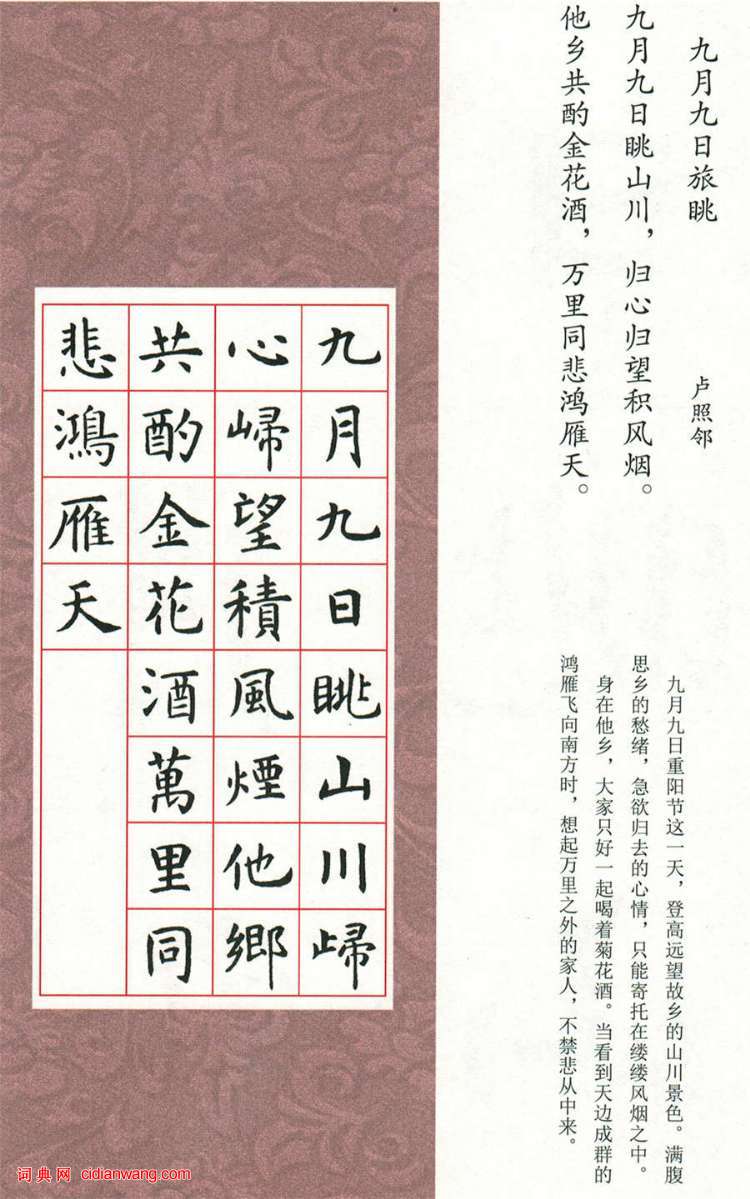 九月九日旅眺
卢照邻
九月九日眺山川，归心归望积风烟。
他乡共酌金花酒，万里同悲鸿雁天。
九月九日重阳节这一天，登高远望故乡的山川景色。满腹
思乡的愁绪，急欲归去的心情，只能寄托在缕缕风烟之中。
身在他乡，大家只好一起喝着菊花酒。当看到天边成群的
鸿雁飞向南方时，想起万里之外的家人，不禁悲从中来。
九月九日眺山川歸
心歸望積風煙他鄉
共酌金花酒萬里同
悲鴻雁天
词典网 cidianwang.com